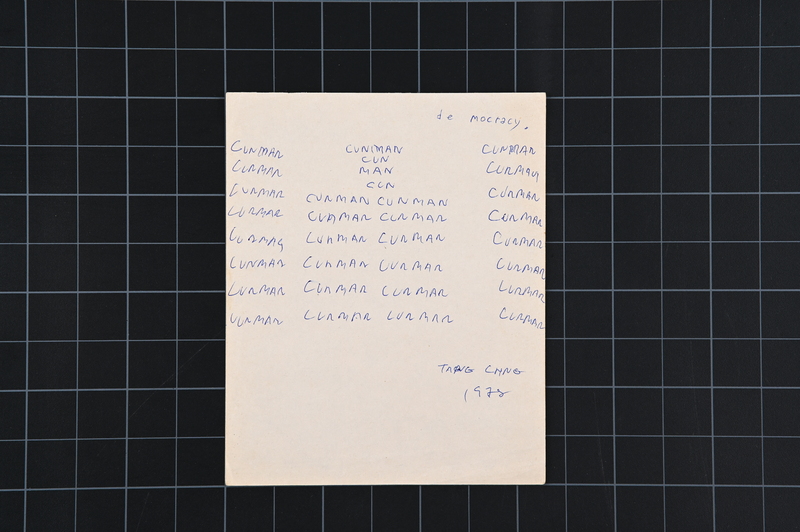 de mocracy.
CUNMAN CUNMAN CUNMAN
CUN
CUNMAN MAN CUNMAN
CUN
CUNMAN CUNMAN CUNMAN CUNMAN
CUNMAN CUNMAN CUNMAN CUNMAN
CUNMAN CUNMAN CUNMAN CUNMAN
CUNMAN CUNMAN CUNMAN CUNMAN
CUNMAN CUNMAN CUNMAN CUNMAN
CUNMAN CUNMAN CUNMAN CUNMAN
TANG CHANG